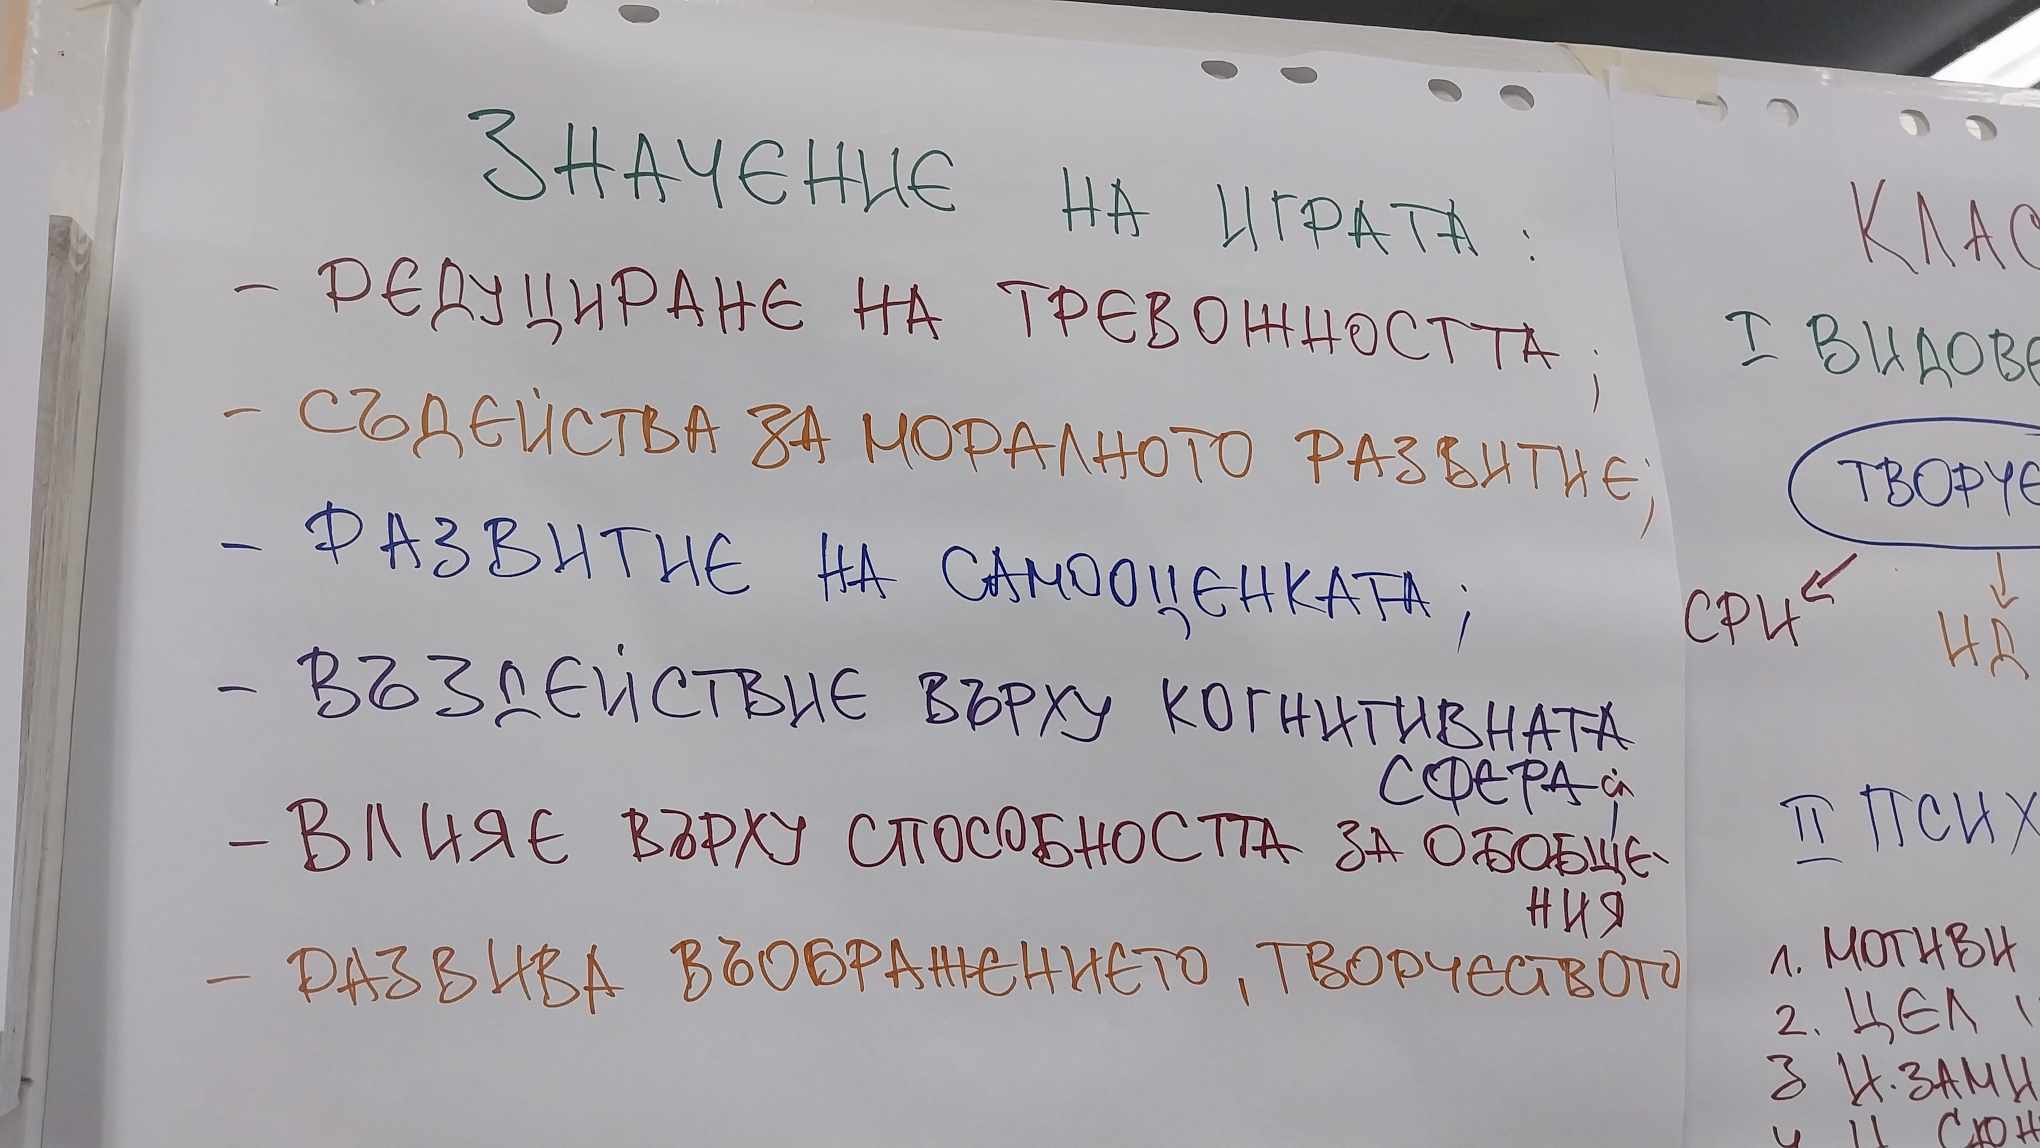 ЗНАЧЕНИЕ НА ИГРАТА:
- РЕДУЦИРАНЕ НА ТРЕВОЖНОСТТА;
- СЪДЕЙСТВА ЗА МОРАЛНОТО РАЗВИТИЕ;
- РАЗВИТИЕ НА САМООЦЕНКАТА;
- ВЪЗДЕЙСТВИЕ ВЪРХУ КОГНИТИВНАТА
СФЕРА
- ВЛИЯЕ ВЪРХУ СПОСОБНОСТТА ЗА ОБОБЩЕ-
НИЯ
- РАЗВИВА ВЪОБРАЖЕНИЕТО, ТВОРЧЕСТВОТО
КЛАС
I ВИДОВЕ
ТВОРЧЕ
СРИ
ИД
II ПСИХ
1. МОТИВИ
2. ЦЕЛ
3 И. ЗАМИ